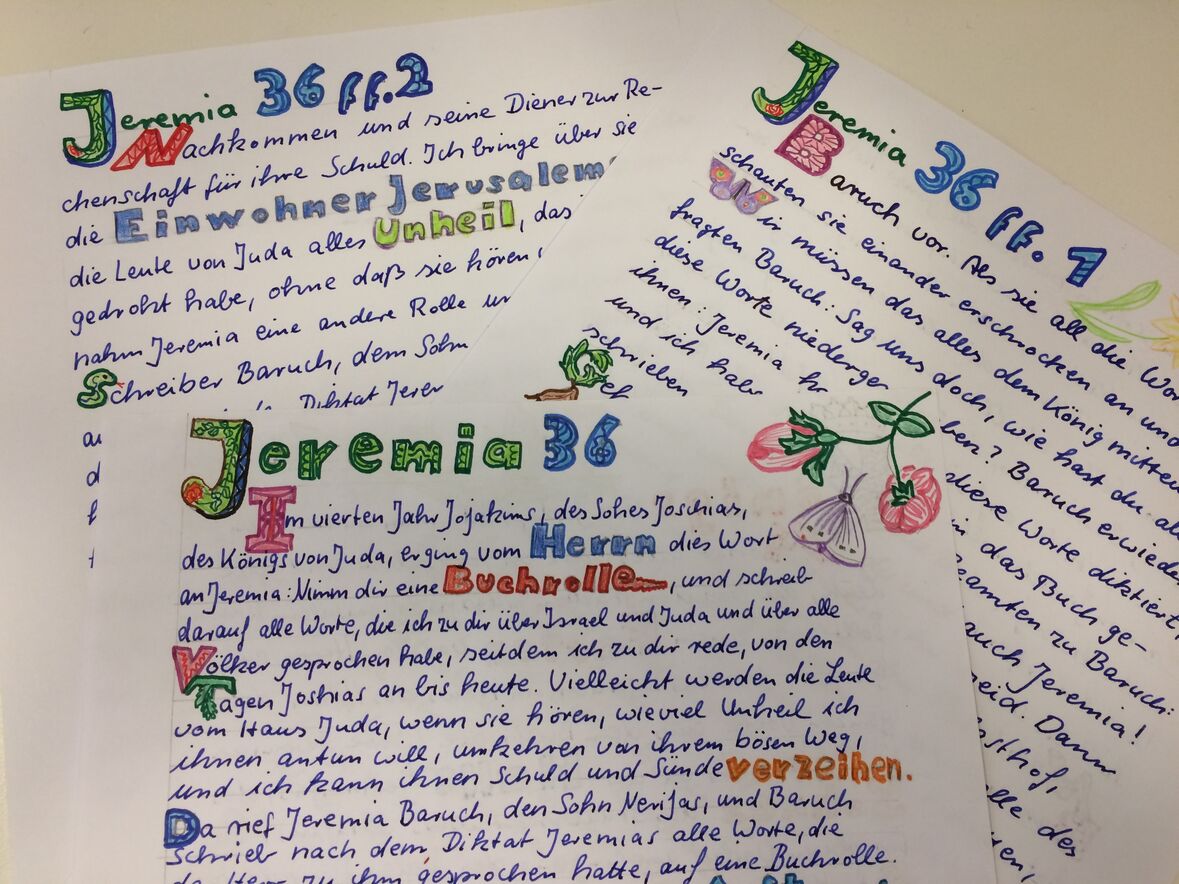 Jeremia 36 ff. 2
Nachkommen und seine Diener zur Re-
chenschaft für ihre Schuld. Ich bringe über sie
die Einwohner Jerusalem
die Leute von Juda alles Unheil, das
gedroht habe, ohne daß sie hören
nahm Jeremia eine andere Rolle
Schreiber Baruch, dem Sohn
Diktat Jerem
Jeremia 36 ff. 1
Baruch vor. Als sie all die Wor
schauten sie einander erschrocken an und
Wir müssen das alles dem König mitteil
fragten Baruch: Sag uns doch, wie hast du al
diese Worte niederge ben? Baruch erwiede
ihnen: Jeremia diese Worte diktiert,
und ich habe in das Buch ge-
schrieben eamten zu Baruch:
auch Jeremia!
eid. Dann
sthof,
lle des
Jeremia 36
Im vierten Jahr Jojakims, des Sohes Joschias,
des Königs von Juda, erging vom Herrn dies Wort
an Jeremia: Nimm dir eine Buchrolle, und schreib
darauf alle Worte, die ich zu dir über Israel und Juda und über alle
Völker gesprochen habe, seitdem ich zu dir rede, von den
Tagen Joshias an bis heute. Vielleicht werden die Leute
vom Haus Juda, wenn sie hören, wieviel Unheil ich
ihnen antun will, umkehren von ihrem bösen Weg,
und ich kann ihnen Schuld und Sünde verzeihen.
Da rief Jeremia Baruch, den Sohn Nerijas, und Baruch
schrieb nach dem Diktat Jeremias alle Worte, die
der Herr zu ihm gesprochen hatte, auf eine Buchrolle.